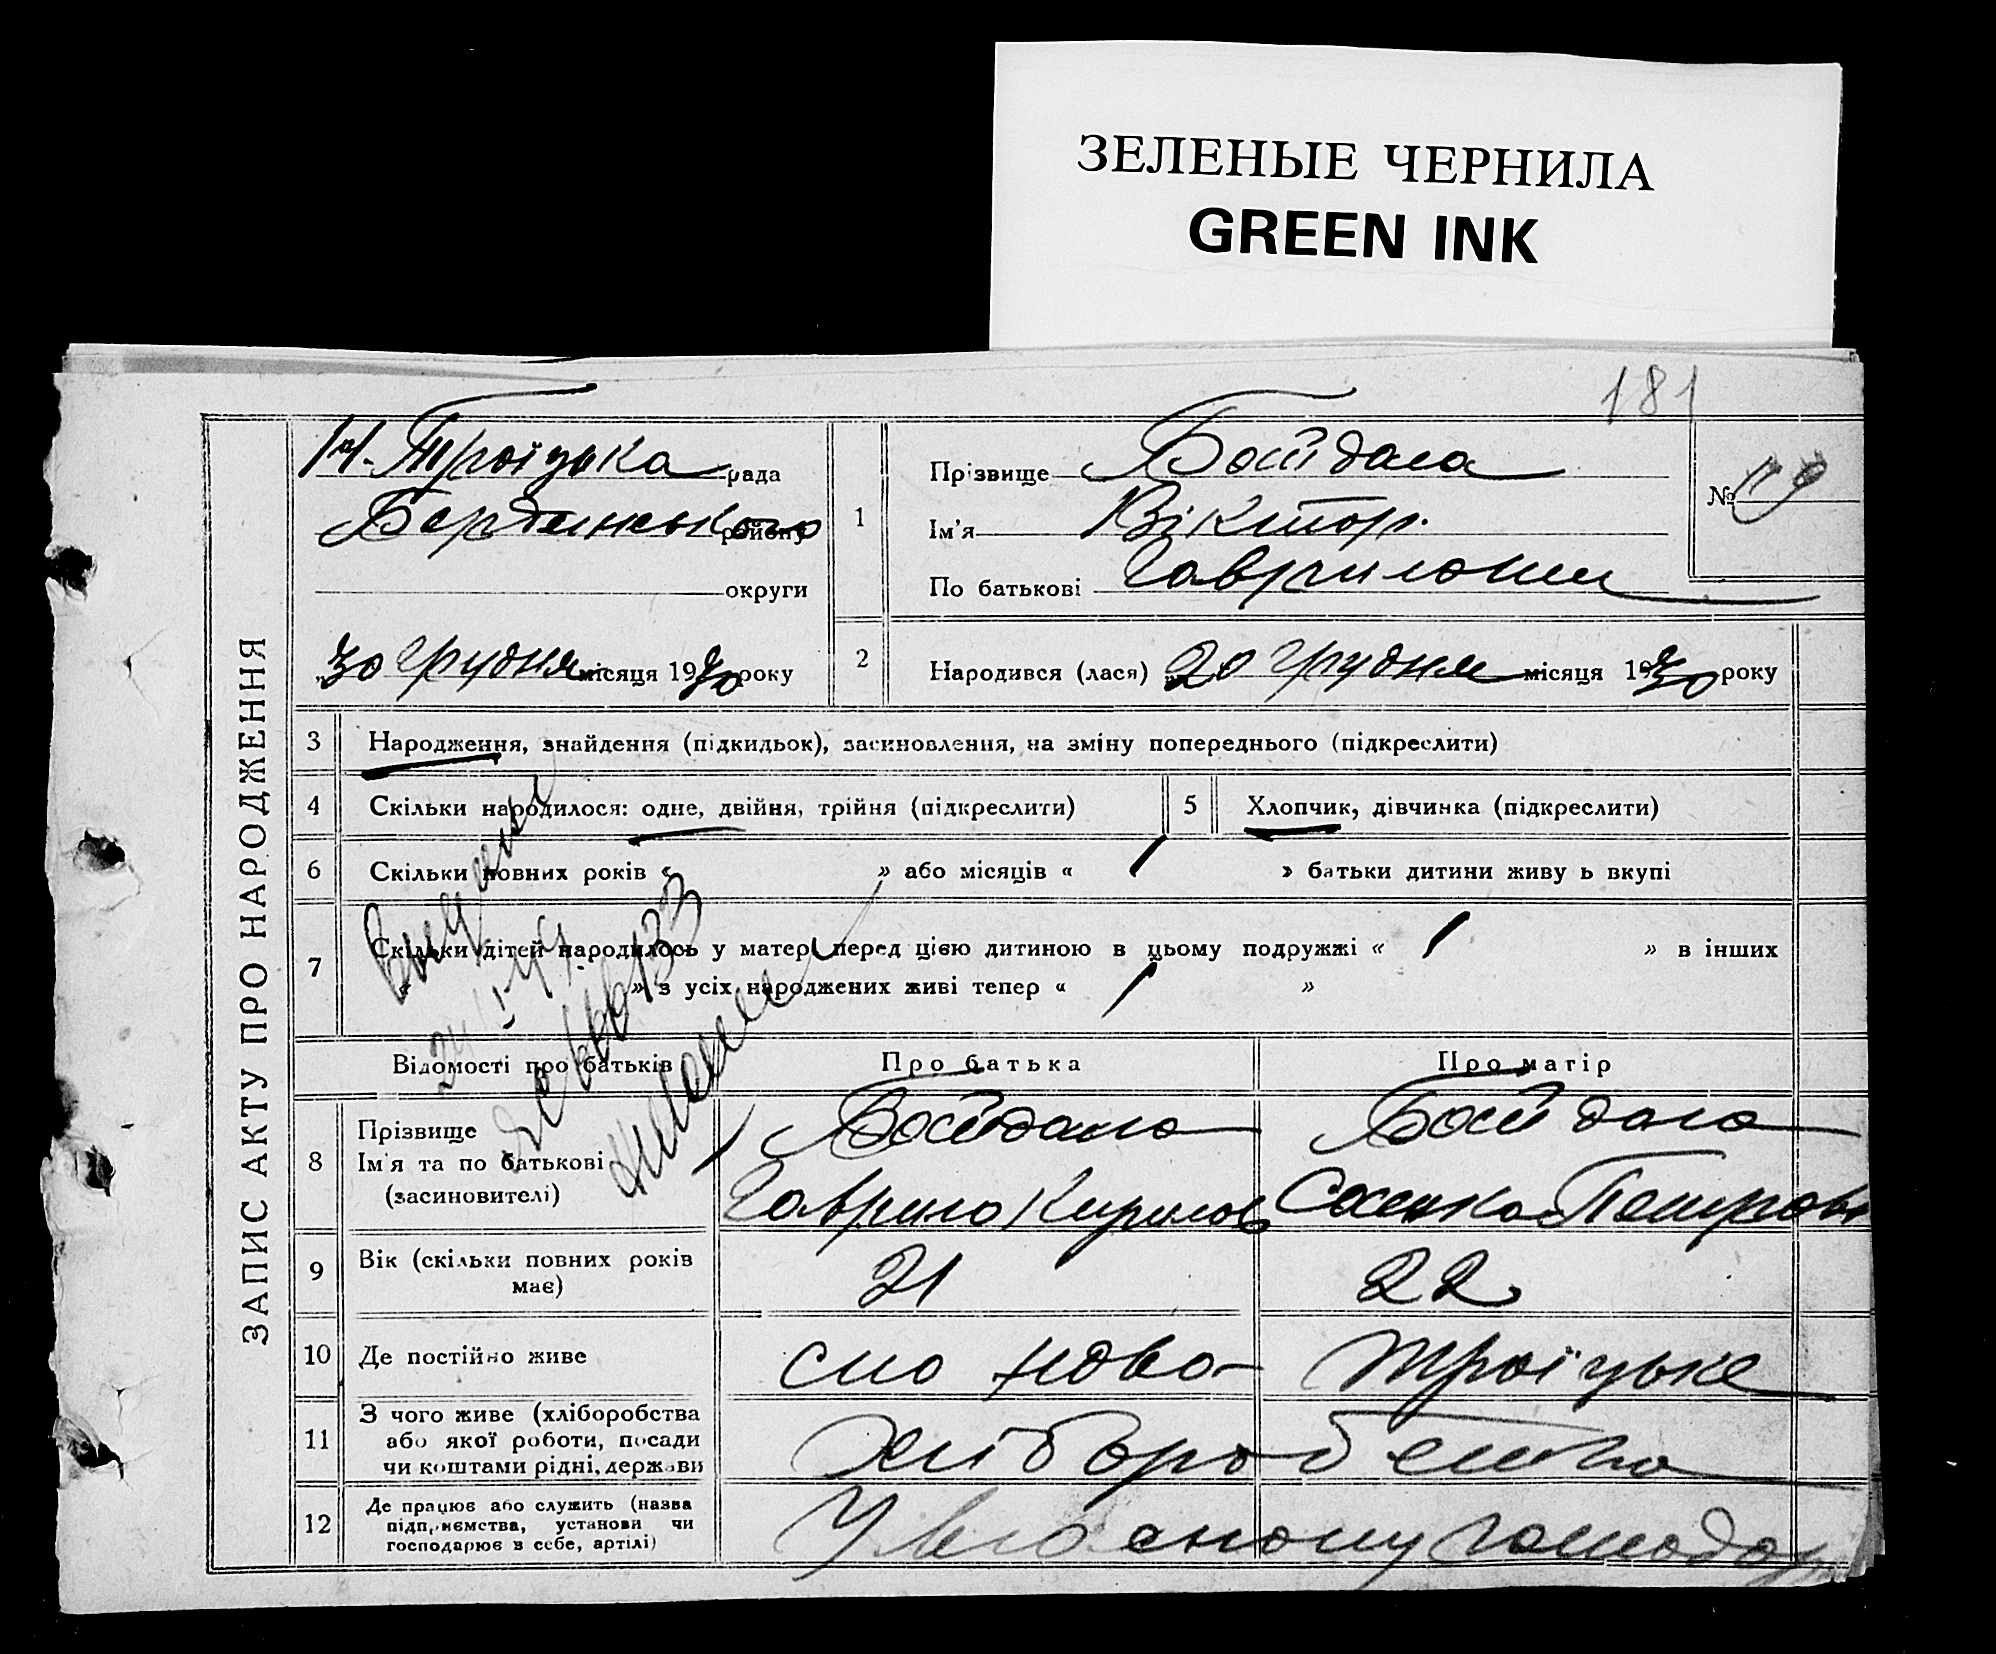 ЗЕЛЕНЫЕ ЧЕРНИЛА
GREEN INK
181
ЗАПИС АКТУ ПРО НАРОДЖЕННЯ
Н. Троїцька рада
Бердянського району
округи
„30 грудня місяця 1930 року
1
Прізвище Байдала
Ім'я Віктор
По батькові Гаврилович
№ 119
2
Народився (лася) „20 грудня місяця 1930 року
3 Народження, знайдення (підкидьок), засиновлення, на зміну попереднього (підкреслити)
4 Скільки народилося: одне, двійня, трійня (підкреслити)
5 Хлопчик, дівчинка (підкреслити)
6 Скільки повних років « » або місяців « 1 » батьки дитини живуть вкупі
7 Скільки дітей народилось у матері перед цією дитиною в цьому подружжі « 1 » в інших
« » з усіх народжених живі тепер « 1 »
Відомості про батьків Про батька Про матір
8 Прізвище Байдала Байдала
Ім'я та по батькові Гаврило Кирилов Петров
(засиновителі)
9 Вік (скільки повних років має) 21 22
10 Де постійно живе село Ново- Троїцьке
11 З чого живе (хліборобства
або якої роботи, посади
чи коштами рідні, держави
хліборобство
12 Де працює або служить (назва
підприємства, установи чи
господарює в себе, артілі)
У власному господар